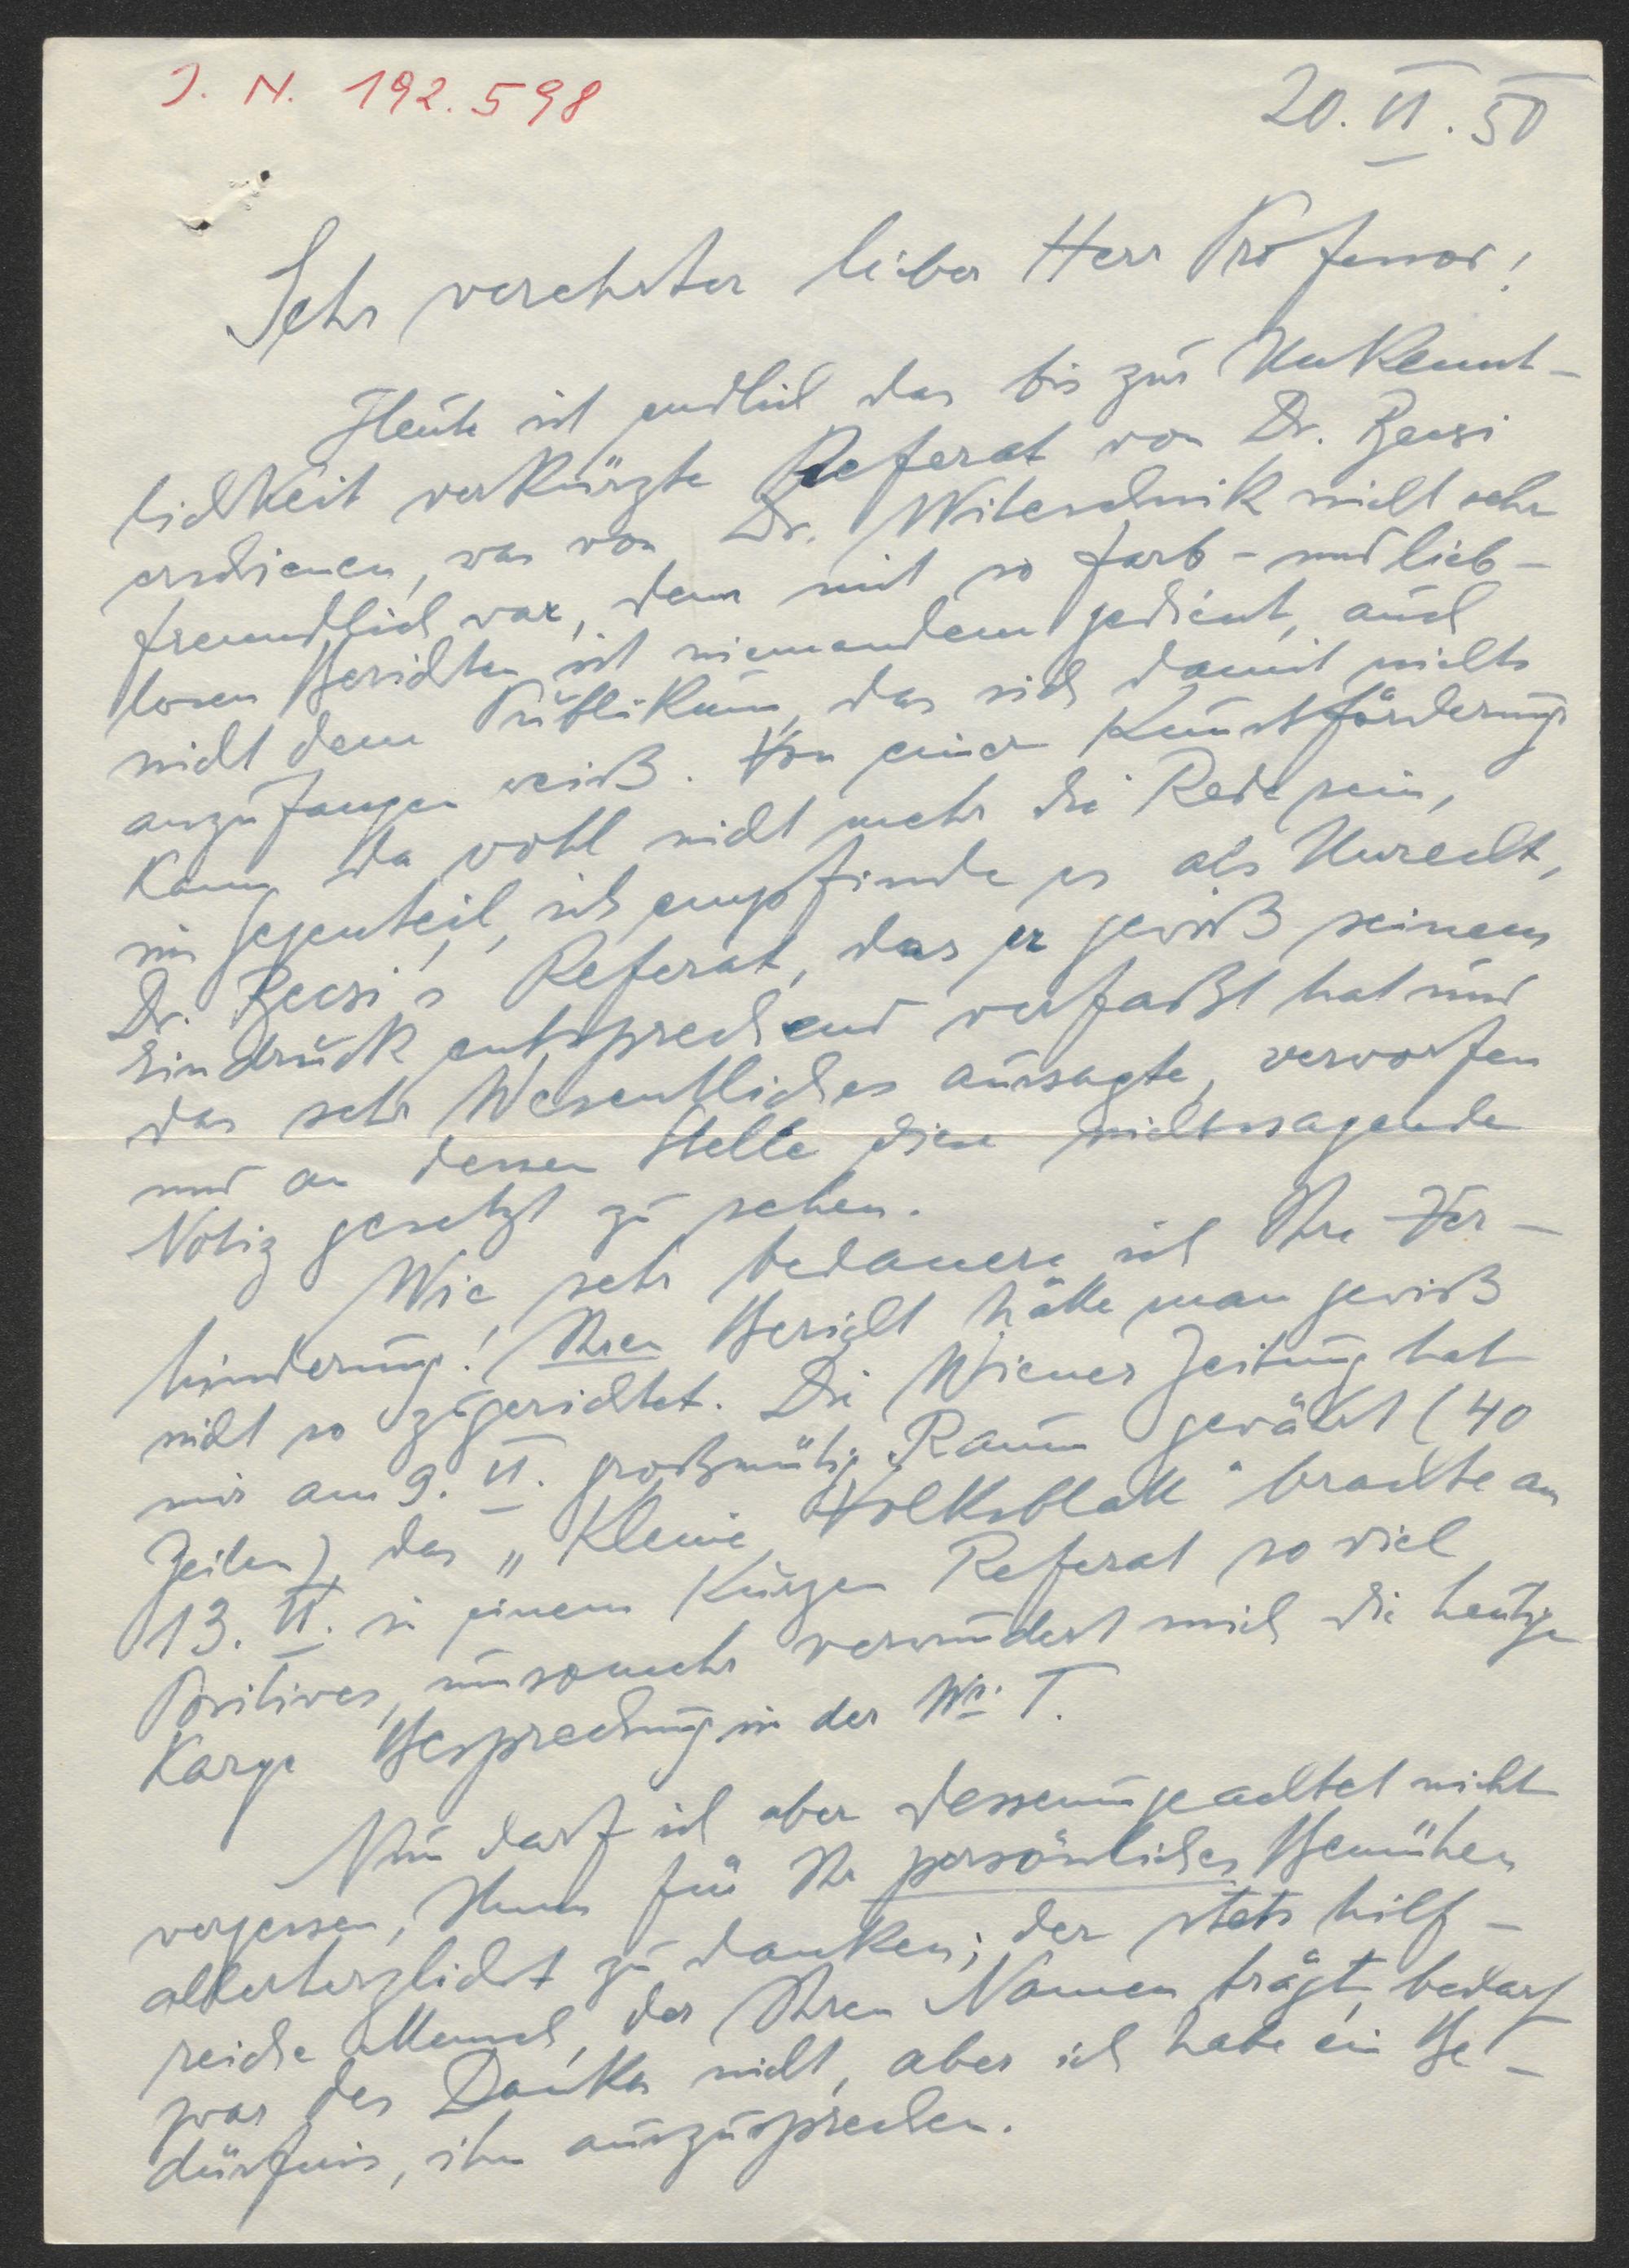 J. N. 192.598
20. VI. 50
Sehr verehrter lieber Herr Professor!
Heute ist endlich das bis zur Unkennt-
lichkeit verkürzte Referat von Dr.
erschienen, was von Dr. Witeschnik nicht sehr
freundlich war, denn mit so farb- und lieb-
losen Berichten ist niemandem gedient, auch
nicht dem Publikum, das sich damit nichts
anzufangen weiß. Von einer Kunstförderung
kann da wohl nicht mehr die Rede sein,
im Gegenteil, ich empfinde es als Unrecht,
Dr. Referat, das er gewiß seinem
Eindruck entsprechend verfaßt hat und
das sehr Wesentliches aussagte, verworfen
und an dessen Stelle diese nichtssagende
Notiz gesetzt zu sehen.
Wie sehr bedauere ich Ihre Ver-
hinderung! Ihren Bericht hätte man gewiß
nicht so zugerichtet. Die Wiener Zeitung hat
mir am 9. VI. großmütig Raum gewährt (40
Zeilen), das „Kleine Volksblatt" brachte am
13. VI. in einem kurzen Referat so viel
Positives, umsomehr verwundert mich die heutige
karge Besprechung in der Wr. T.
Nun darf ich aber dessenungeachtet nicht
vergessen, Ihnen für Ihr persönliches Bemühen
allerherzlichst zu danken; der stets hilf-
reiche Mensch, der Ihren Namen trägt, bedarf
zwar des Dankes nicht, aber ich habe ein Be-
dürfnis, ihn auszusprechen.